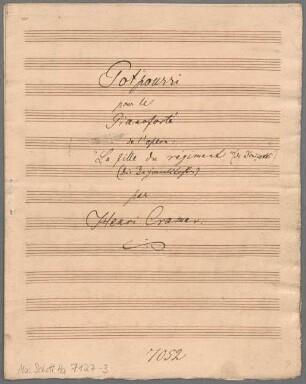 Potpourri
pour le
Pianoforté
de l'opéra:
La fille du régiment de Donizetti
(die Regimentstochter)
par
Henri Cramer.
7052
Mus. Schott Ha 7127-3